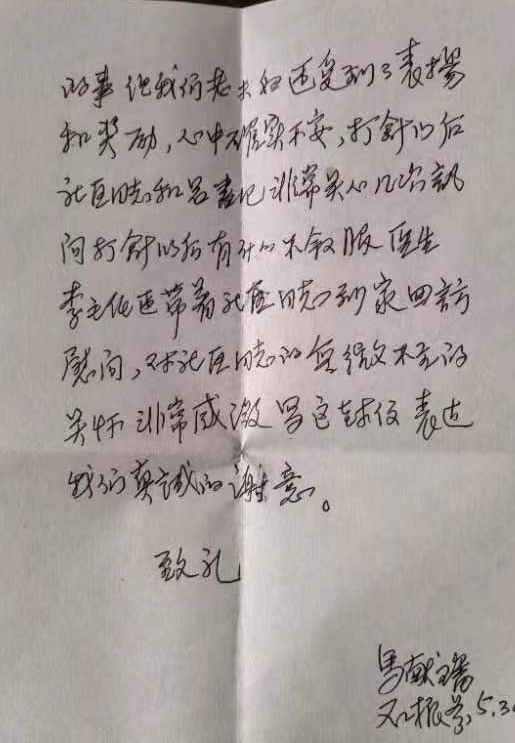 的事 我们老夫妇还受到了表揚
和奖励，心中确实不安，打針以后
社区同志和書记非常关心几次訊
问打針以后有什么不舒服 医生
李主任还带着社区同志到家回訪
慰问，对社区同志的無微不至的
关怀非常感激 写这封信表达
我们真誠的谢意。
致礼
馬献
振 5.3